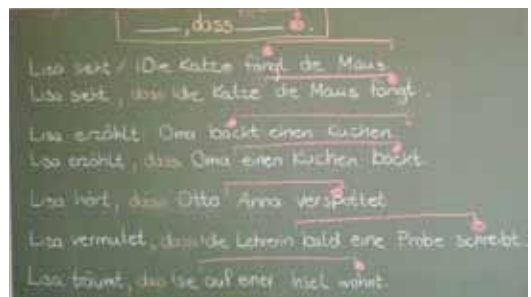 ____, dass ____ .
Lisa sieht / Die Katze fängt die Maus.
Lisa sieht, dass die Katze die Maus fängt.
Lisa erzählt: Oma backt einen Kuchen.
Lisa erzählt, dass Oma einen Kuchen backt.
Lisa hört, dass Otto Anna verspottet.
Lisa vermutet, dass die Lehrerin bald eine Probe schreibt.
Lisa träumt, dass sie auf einer Insel wohnt.